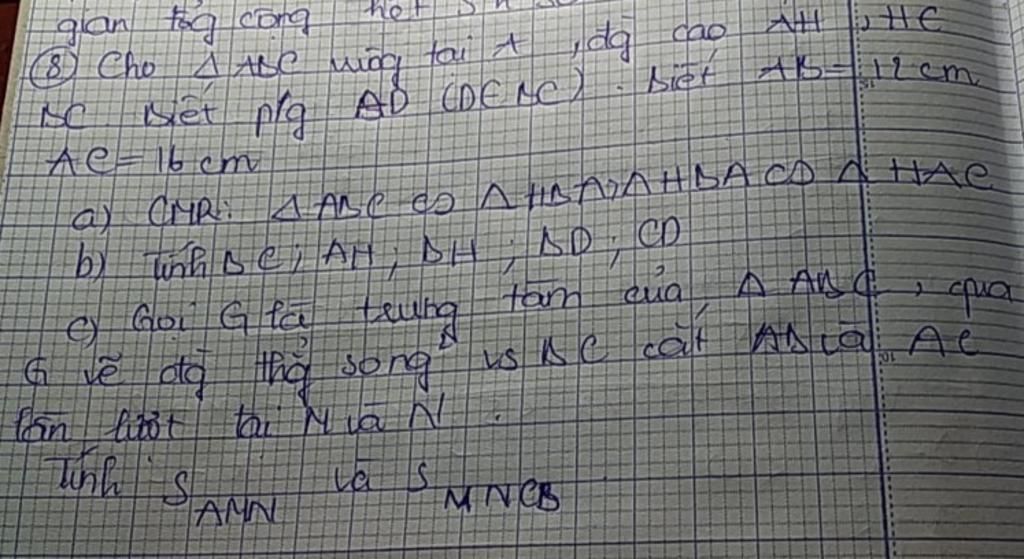 gian tổg cộng hết
⑧ Cho Δ ABC vuôg tại A, đg cao AH, HE
BC biết p/g AD (D∈BC). biết AB = 12 cm
AC = 16 cm
a) CMR: Δ ABC ∽ Δ HBA, Δ HBA ∽ Δ HAC
b) Tính BC; AH; BH; BD; CD
c) Gọi G là trung tâm của Δ ABC, qua
G vẽ đg thg song² vs BC cắt AB và AC
lần lượt tại M và N.
Tính S AMN và S MNCB